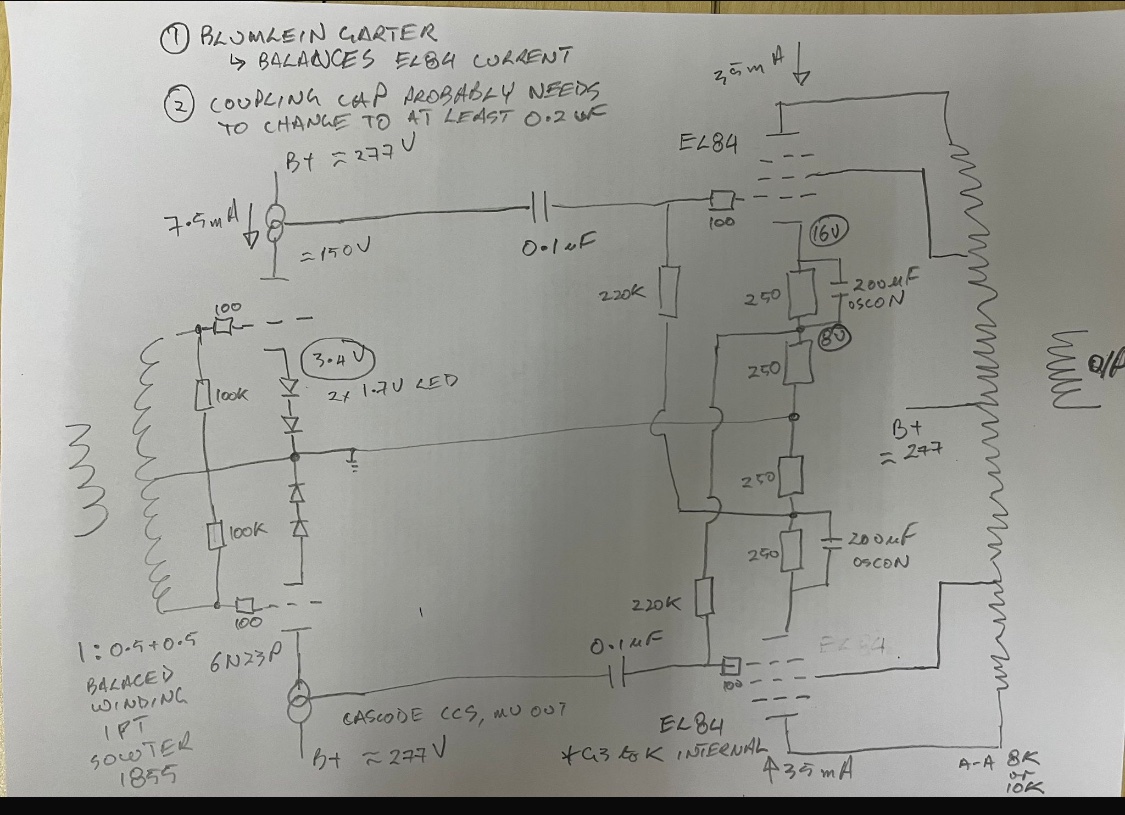 ① BLUMLEIN GARTER
↳ BALANCES EL84 CURRENT
② COUPLING CAP PROBABLY NEEDS
TO CHANGE TO AT LEAST 0.2uF
B+ ≈ 277V
7.5mA ↓
≈150V
0.1uF
35mA ↓
EL84
100
16V
220K
250
200uF
OSCON
8V
250
100
3.4V
2x 1.7V LED
100K
B+
≈ 277
O/P
250
100K
250
200uF
OSCON
220K
100
0.1uF
EL84
100
1:0.5+0.5
BALACED
WINDING
IPT
SOWTER
1855
6N23P
CASCODE CCS, MU OUT
B+ ≈ 277V
EL84
*G3 to K INTERNAL
↑35mA
A-A 8K
or
10K